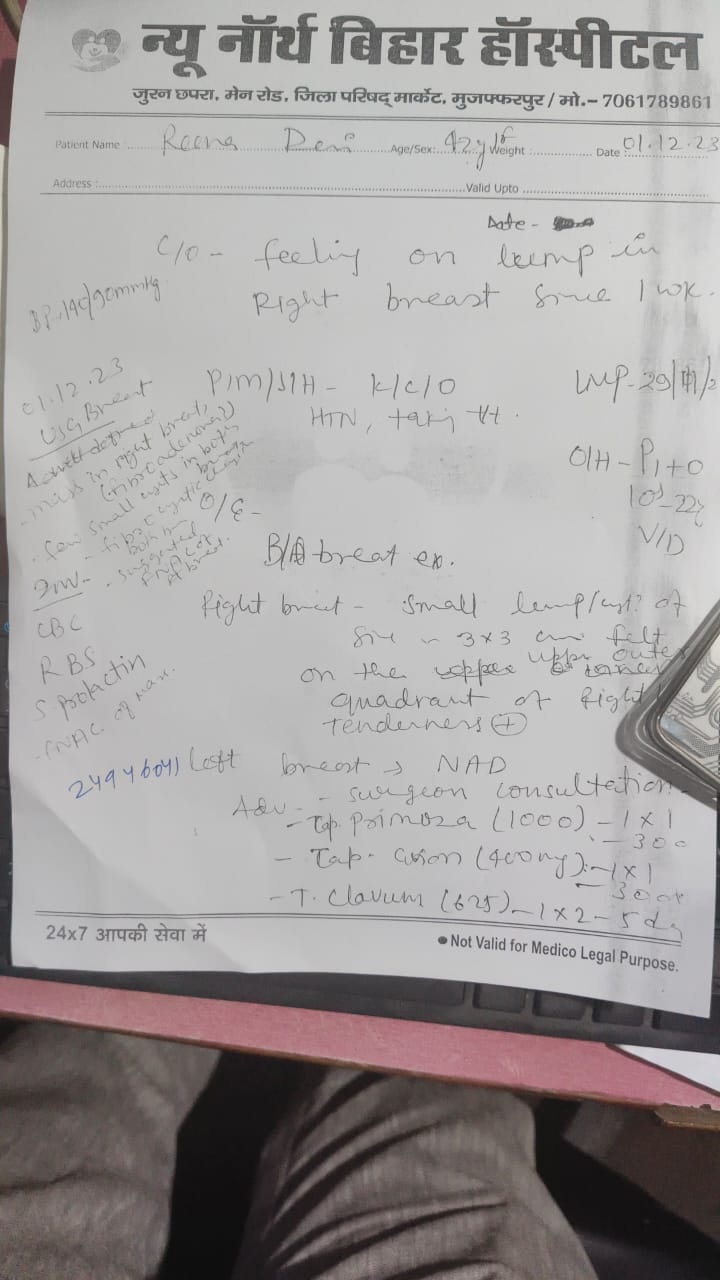 न्यू नॉर्थ बिहार हॉस्पीटल
जुरन छपरा, मेन रोड, जिला परिषद् मार्केट, मुजफ्फरपुर / मो.– 7061789861
Patient Name Reena Devi Age/Sex: 42y/F Weight : Date : 01.12.23
Address : Valid Upto
Date -
C/O - feeling on lump in
Right breast since 1 wk.
BP-140/90mmHg
P/M/S/H - K/C/O
HTN, taking tt.
LMP-29/11/2
O/H - P1+0
V/D
01.12.23
USG Breast
A well defined
mass in right breast,
(fibroadenoma?)
- few small cysts in both
breast
- fibrocystic
both
- suggested
FNAC of
rt breast.
Inv -
CBC
RBS
S. prolactin
- FNAC of
24946041
O/E -
B/L breast ex.
Right breast - small lump/cyst? of
size ~ 3x3 cm felt
on the upper outer
quadrant of Right
tenderness +
Left breast → NAD
Adv - - surgeon consultation
- Tap. Primoza (1000) - 1 x 1
- 30
- Tap. (400mg) - 1 x 1
- 30
- T. Clavum (625) - 1 x 2 - 5 d
24x7 आपकी सेवा में
● Not Valid for Medico Legal Purpose.